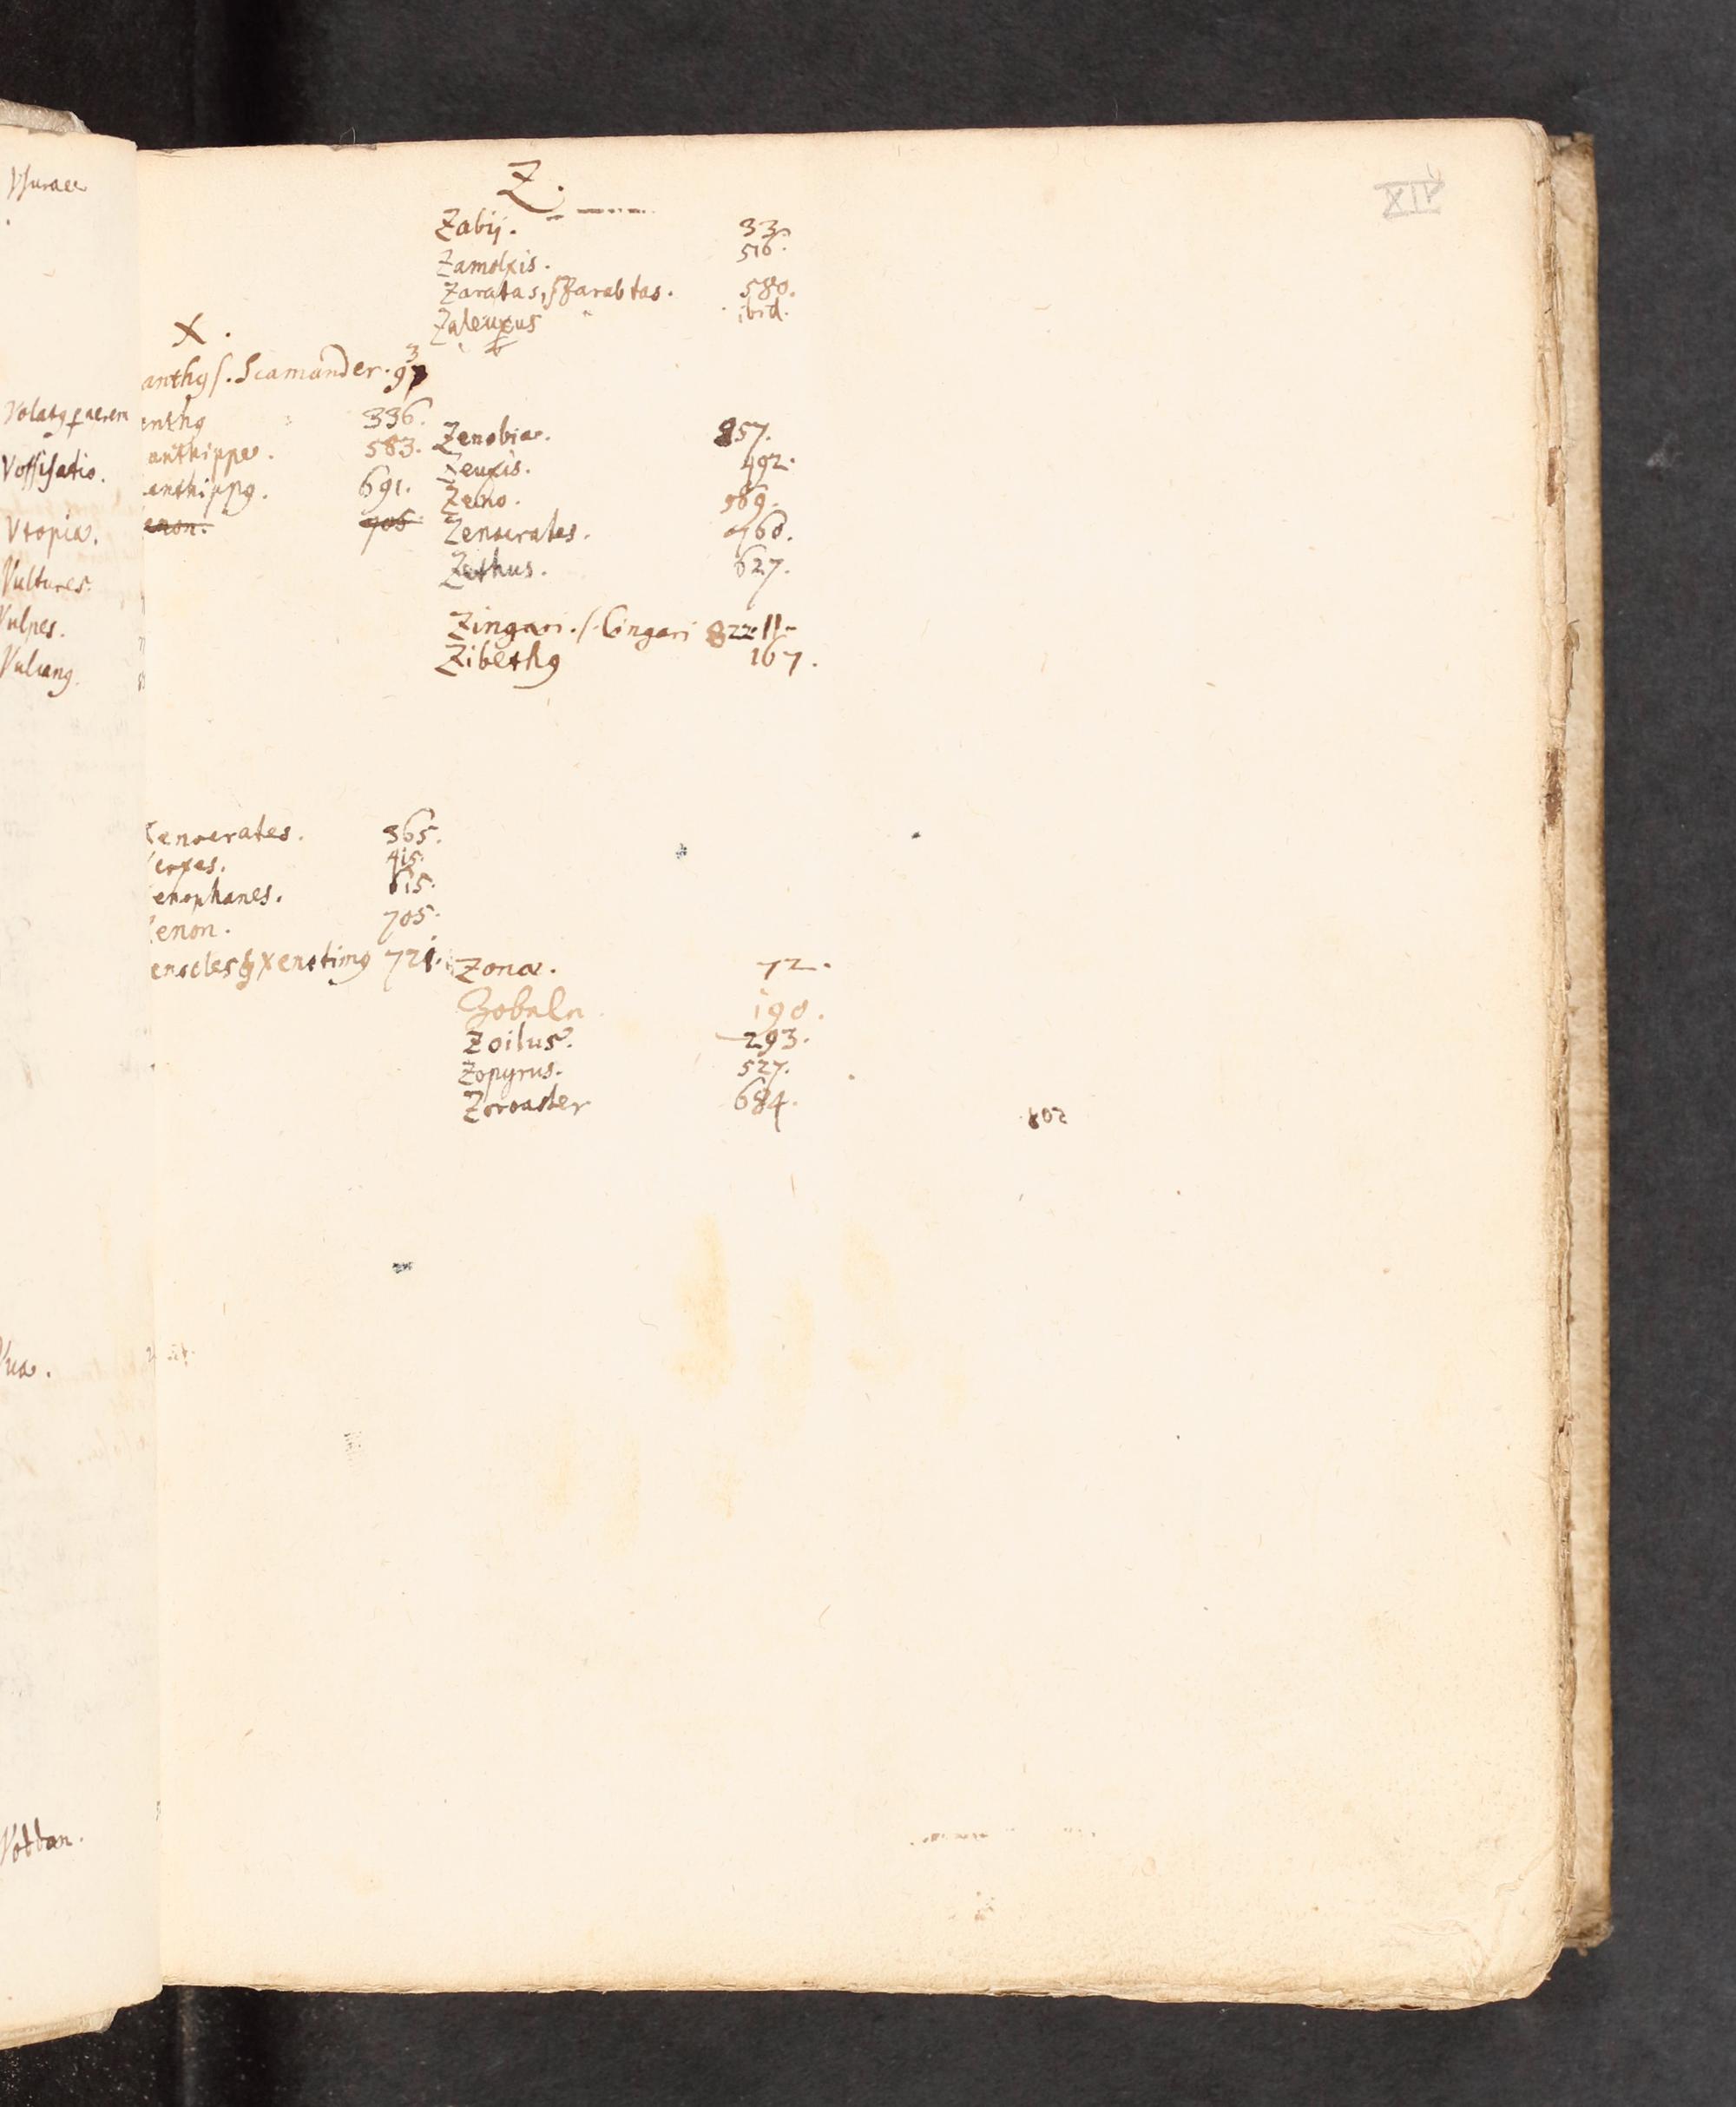 Vsurae
Volatus per aerem
Vossisatio.
Vtopia.
Vultures.
Vulpes.
Vulcanus.
Vua.
Votban.
X.
anthus s. Scamander. 93
anthus 336.
anthippe. 583.
anthippus. 691.
enon. 705
Xenocrates. 365.
erxes. 415.
enophanes. 615.
enon. 705.
enocles & Xenotimus 721.
Z.
Zabij. 33.
Zamolxis. 516.
Zaratas, s. Zarabtas. 580.
Zaleuxus ibid.
Zenobia. 857.
Zeuxis. 492.
Zeno. 569.
Zenocrates. 760.
Zethus. 627.
Zingari. s. Cingari 822.
Zibethus 167.
Zona. 72.
Zobeln 190.
Zoilus. 293.
Zopyrus. 527.
Zoroaster 684.
XIV